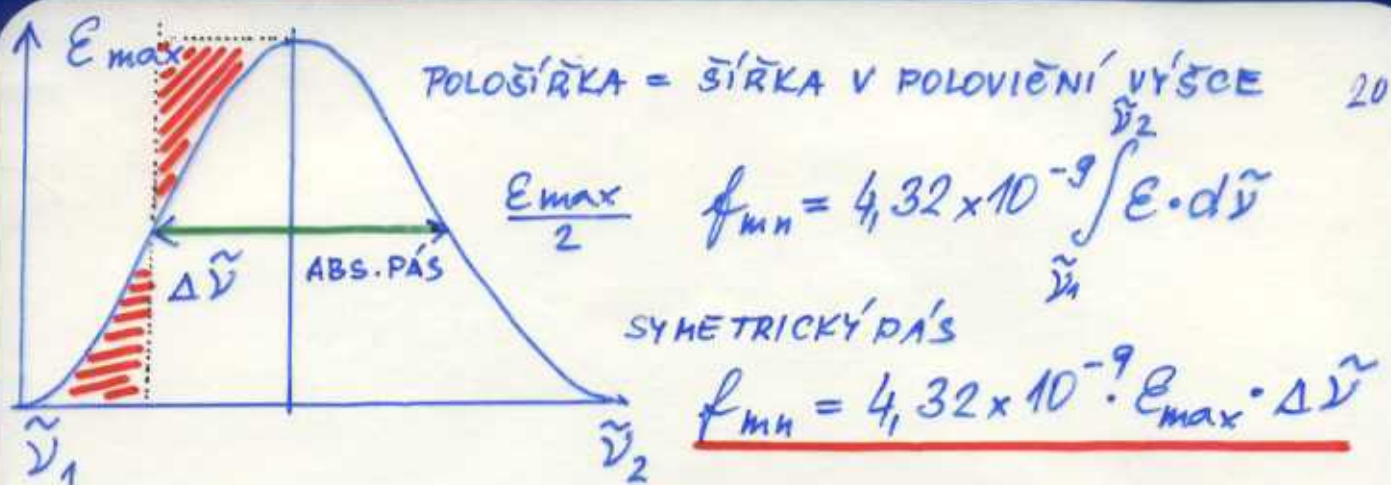 ε max
POLOŠÍŘKA = ŠÍŘKA V POLOVIČNÍ VÝŠCE 20
εmax/2 f_mn = 4,32 × 10⁻⁹ ∫_ν̃₁^ν̃₂ ε · dν̃
Δν̃ ABS. PÁS
SYMETRICKÝ PÁS
f_mn = 4,32 × 10⁻⁹ · ε_max · Δν̃
ν̃₁ ν̃₂